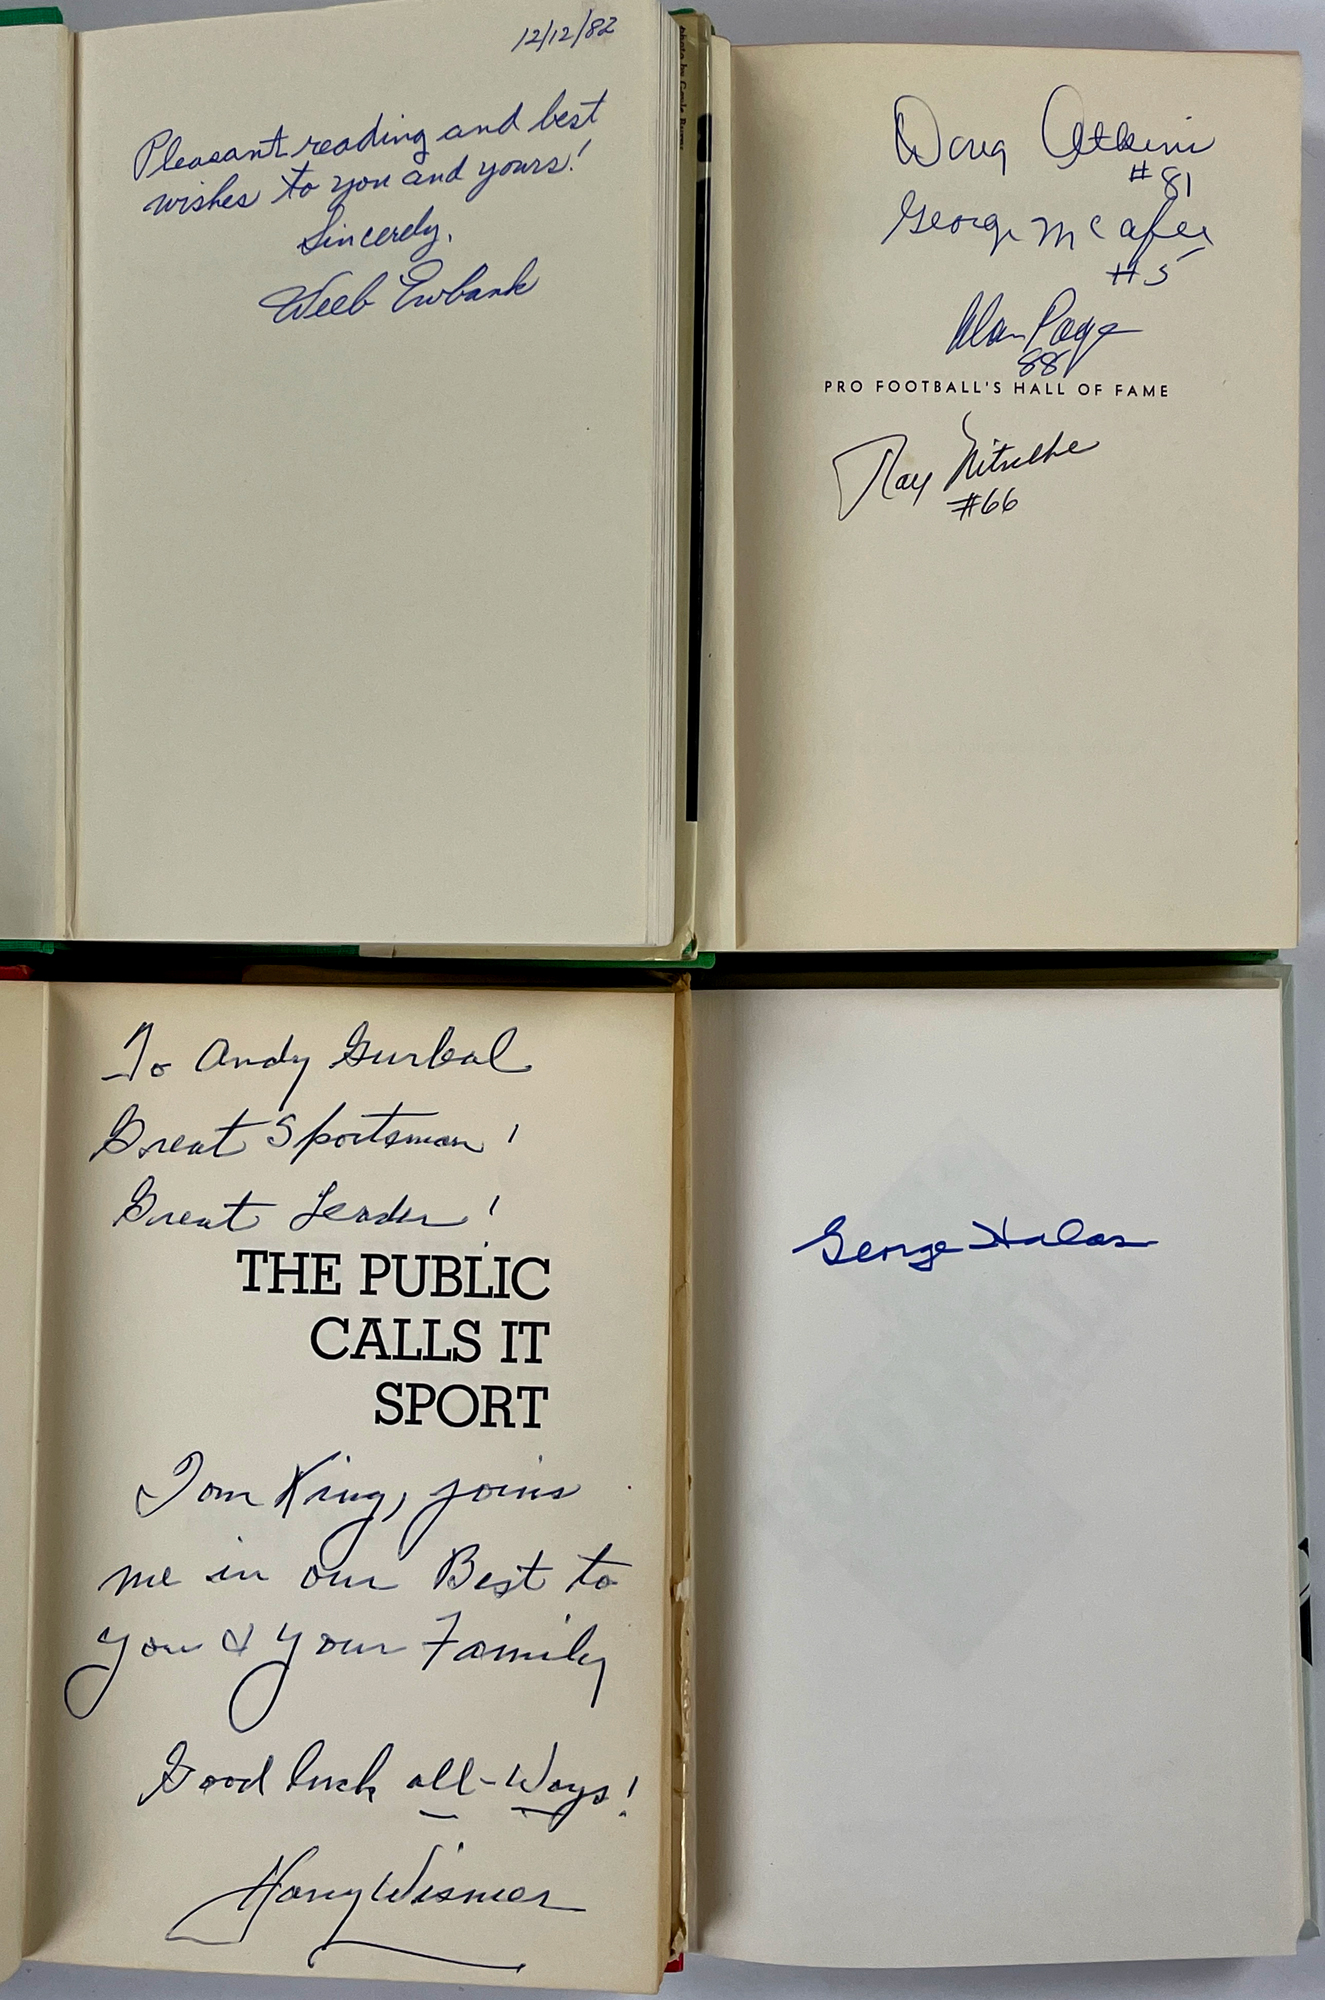 12/12/82
Pleasant reading and best
wishes to you and yours!
Sincerely,
Weeb Ewbank
Doug Atkins
#81
George McAfee
#5
Alan Page
88
PRO FOOTBALL'S HALL OF FAME
Ray Nitschke
#66
To Andy
Great Sportsman!
Great Leader!
THE PUBLIC
CALLS IT
SPORT
Tom King, joins
me in our Best to
you & your Family
Good luck all-Ways!
Harry Wismer
George Halas